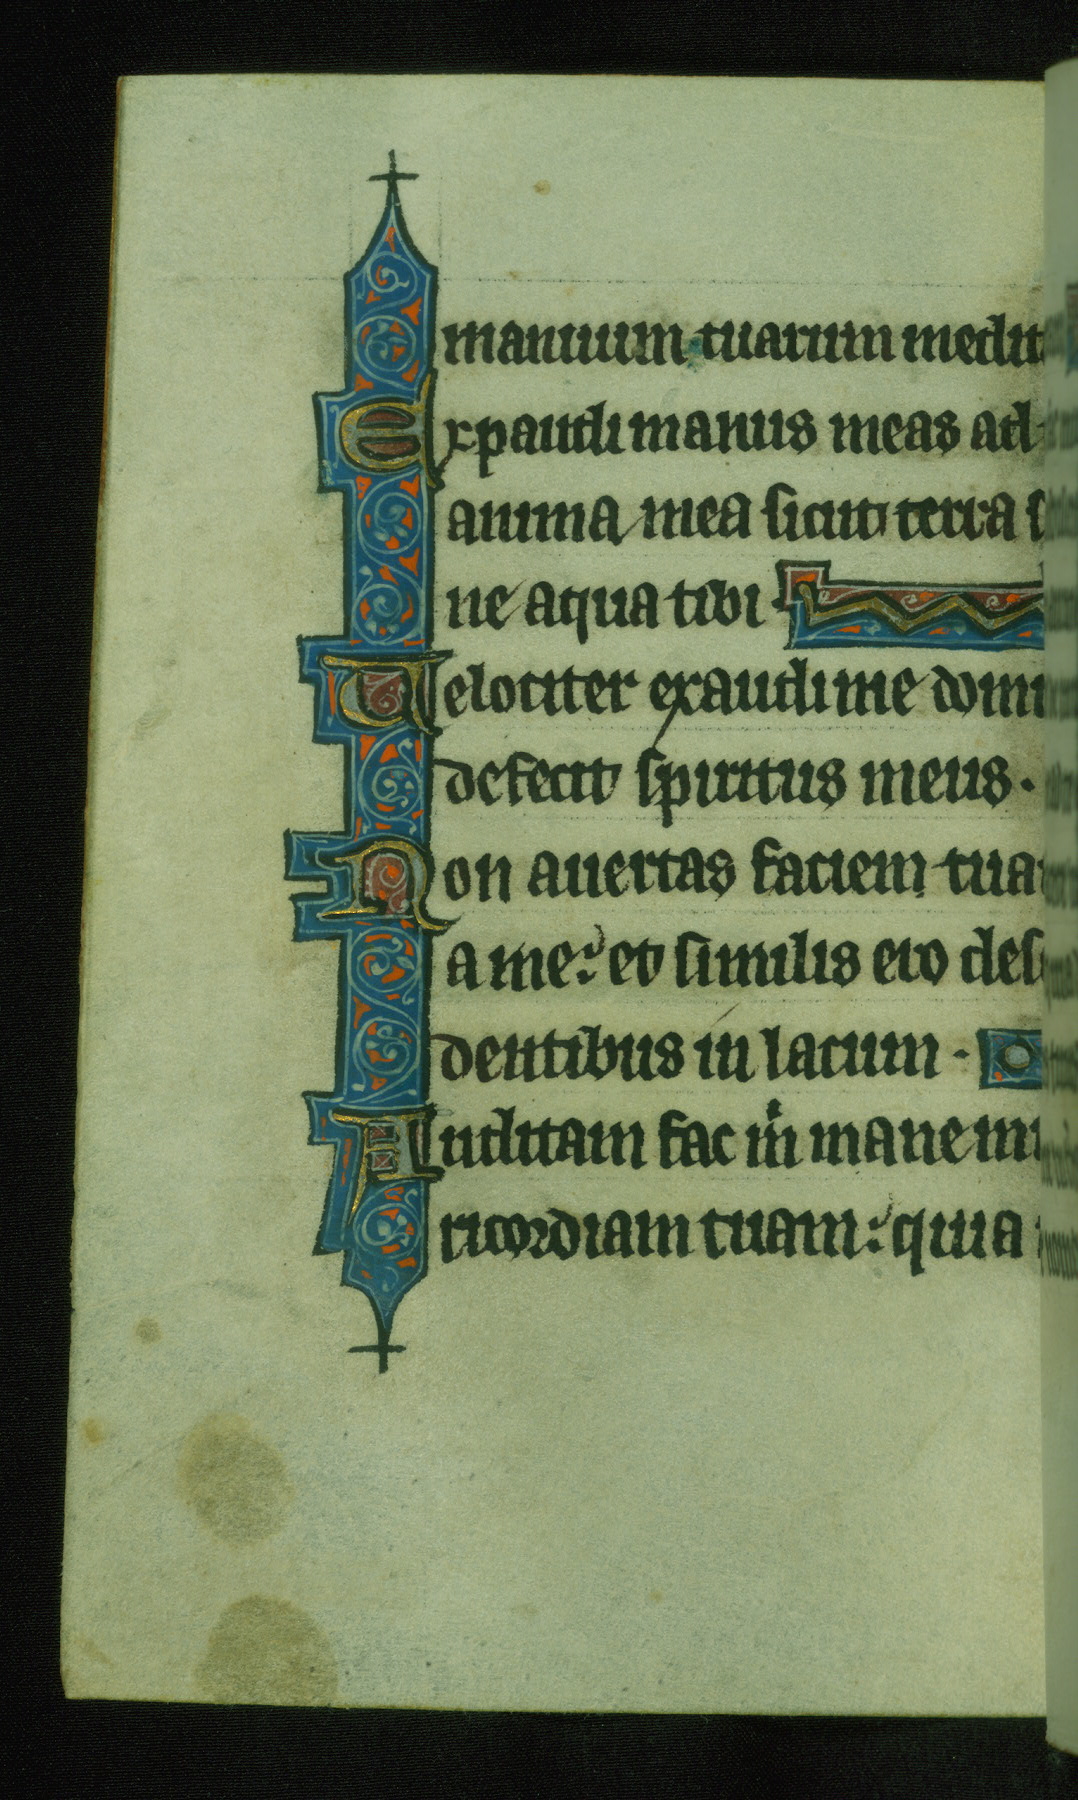 manuum tuarum medit
Expandi manus meas ad
anima mea sicut terra s
ne aqua tibi
Velociter exaudi me domi
defecit spiritus meus.
Non avertas faciem tua
a me: et similis ero des
dentibus in lacum.
Auditam fac m̍ mane mi
ricordiam tuam: quia